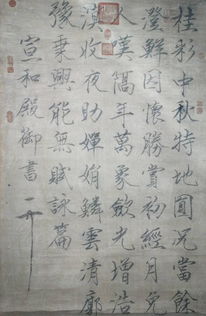 桂彩中秋特地圓況當餘
澄鮮因懷勝賞初經月免
人嘆隔年萬象斂光增浩
溟收夜助嬋娟鱗雲清廓
豫乘興能無賦詠篇
宣和殿御書